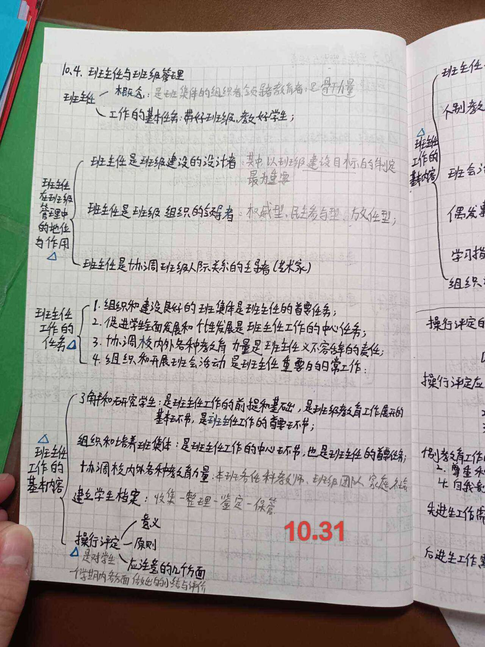 10.4. 班主任与班级管理
班主任
概念：是班集体的组织者
工作的基本任务：带好班级，教好学生；
班主任在班级管理中的地位与作用
班主任是班级建设的设计者：其中以班级建设目标的制定
最为重要
班主任是班级组织的领导者：权威型，民主参与型，放任型；
班主任是协调班级人际关系的主导者（艺术家）
班主任工作的任务
1. 组织和建设良好的班集体是班主任的首要任务；
2. 促进学生全面发展和个性发展是班主任工作的中心任务；
3. 协调校内外各种教育力量是班主任义不容辞的责任；
4. 组织和开展班会活动是班主任重要的日常工作；
班主任工作的基本内容
了解和研究学生：是班主任工作的前提和基础，是班级教育工作展开的
基本环节，是班主任工作的首要环节；
组织和培养班集体：是班主任工作的中心环节，也是班主任的首要任务；
协调校内外各种教育力量：本班各任科教师，班级团队，家庭
建立学生档案：收集-整理-鉴定-保管
操行评定
意义
原则
应注意的几个方面
是对学生
一学期内各方面做出的小结与评价
10.31
班主任
个别教
班主任工作的基本内容
班会活
偶发事
学习指
组织
操行评定的
操行评定应
个别教育工作
先进生工作
后进生工作